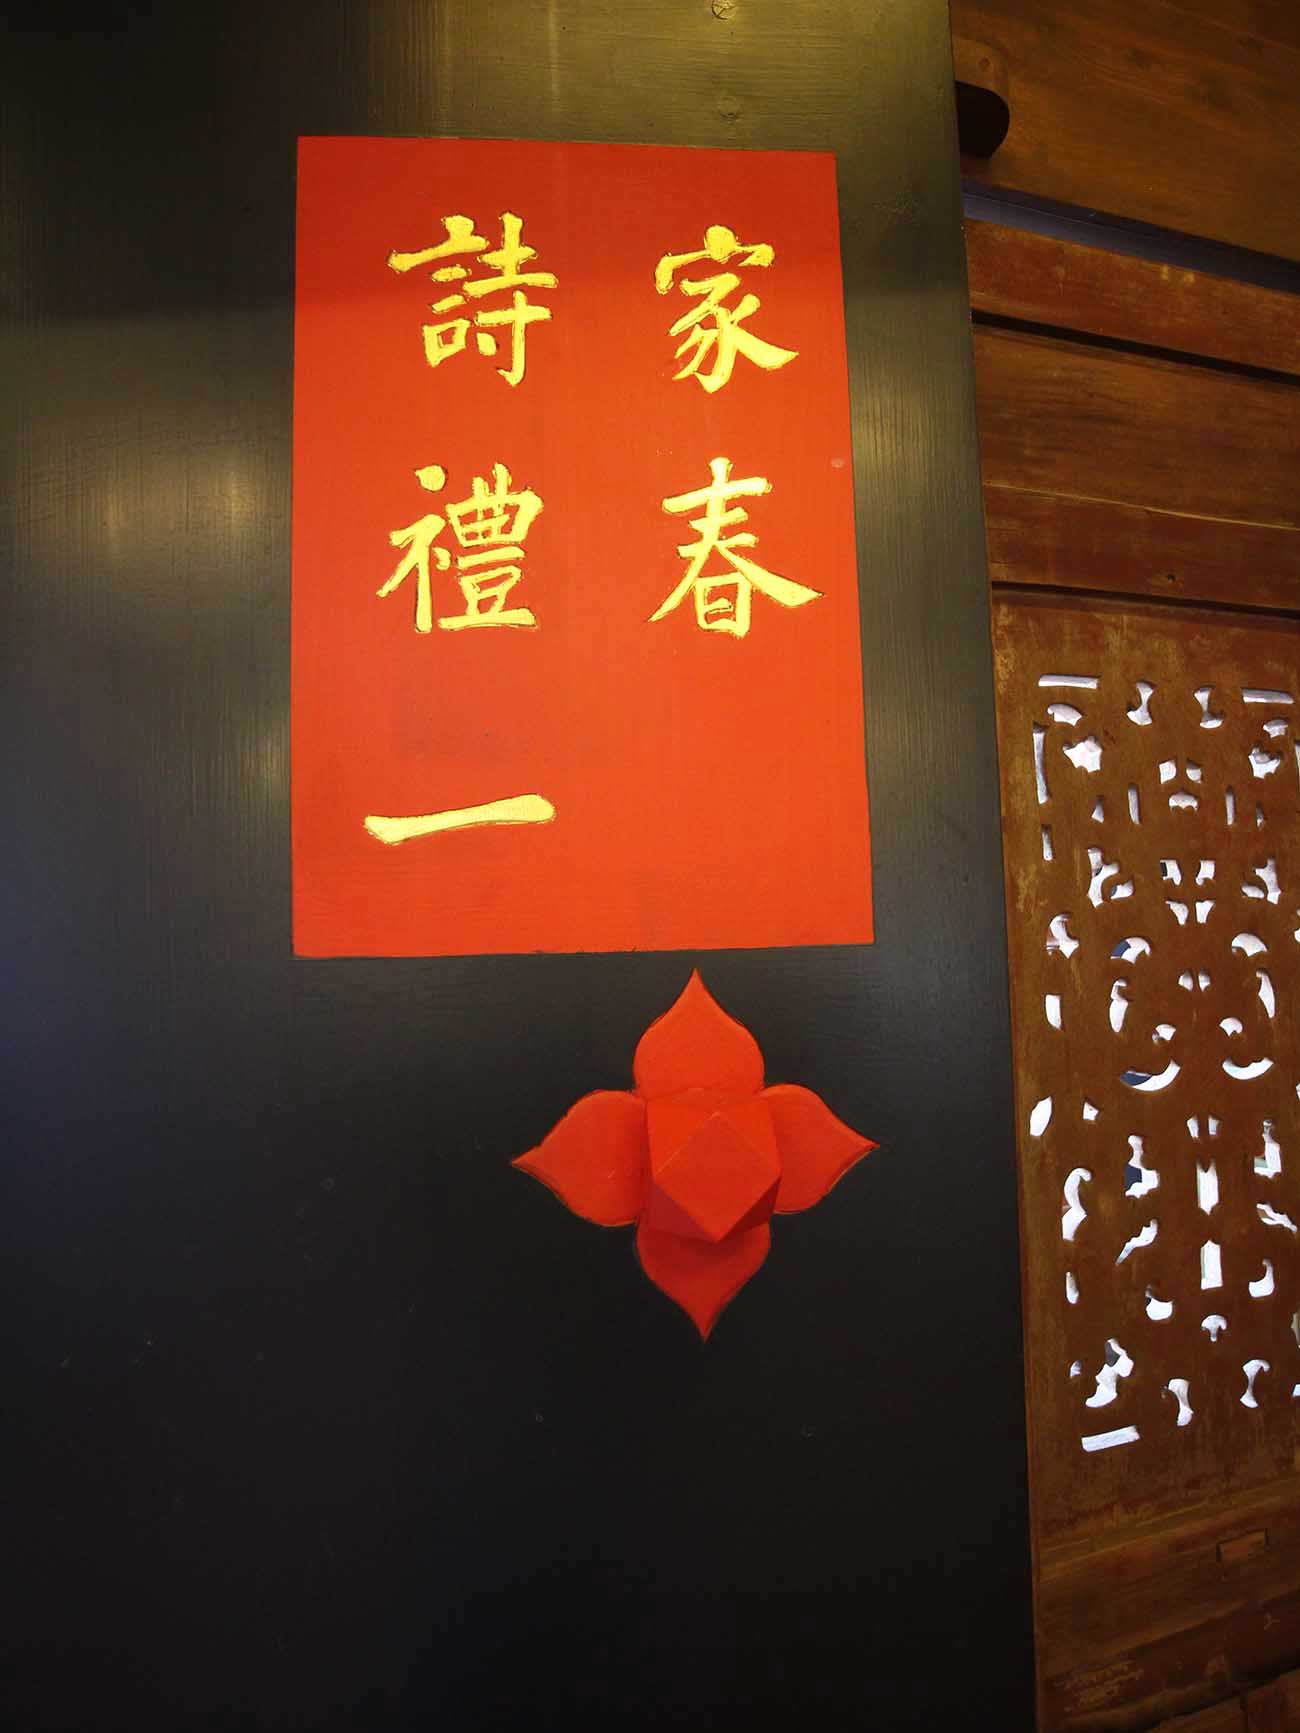 詩禮一
家春